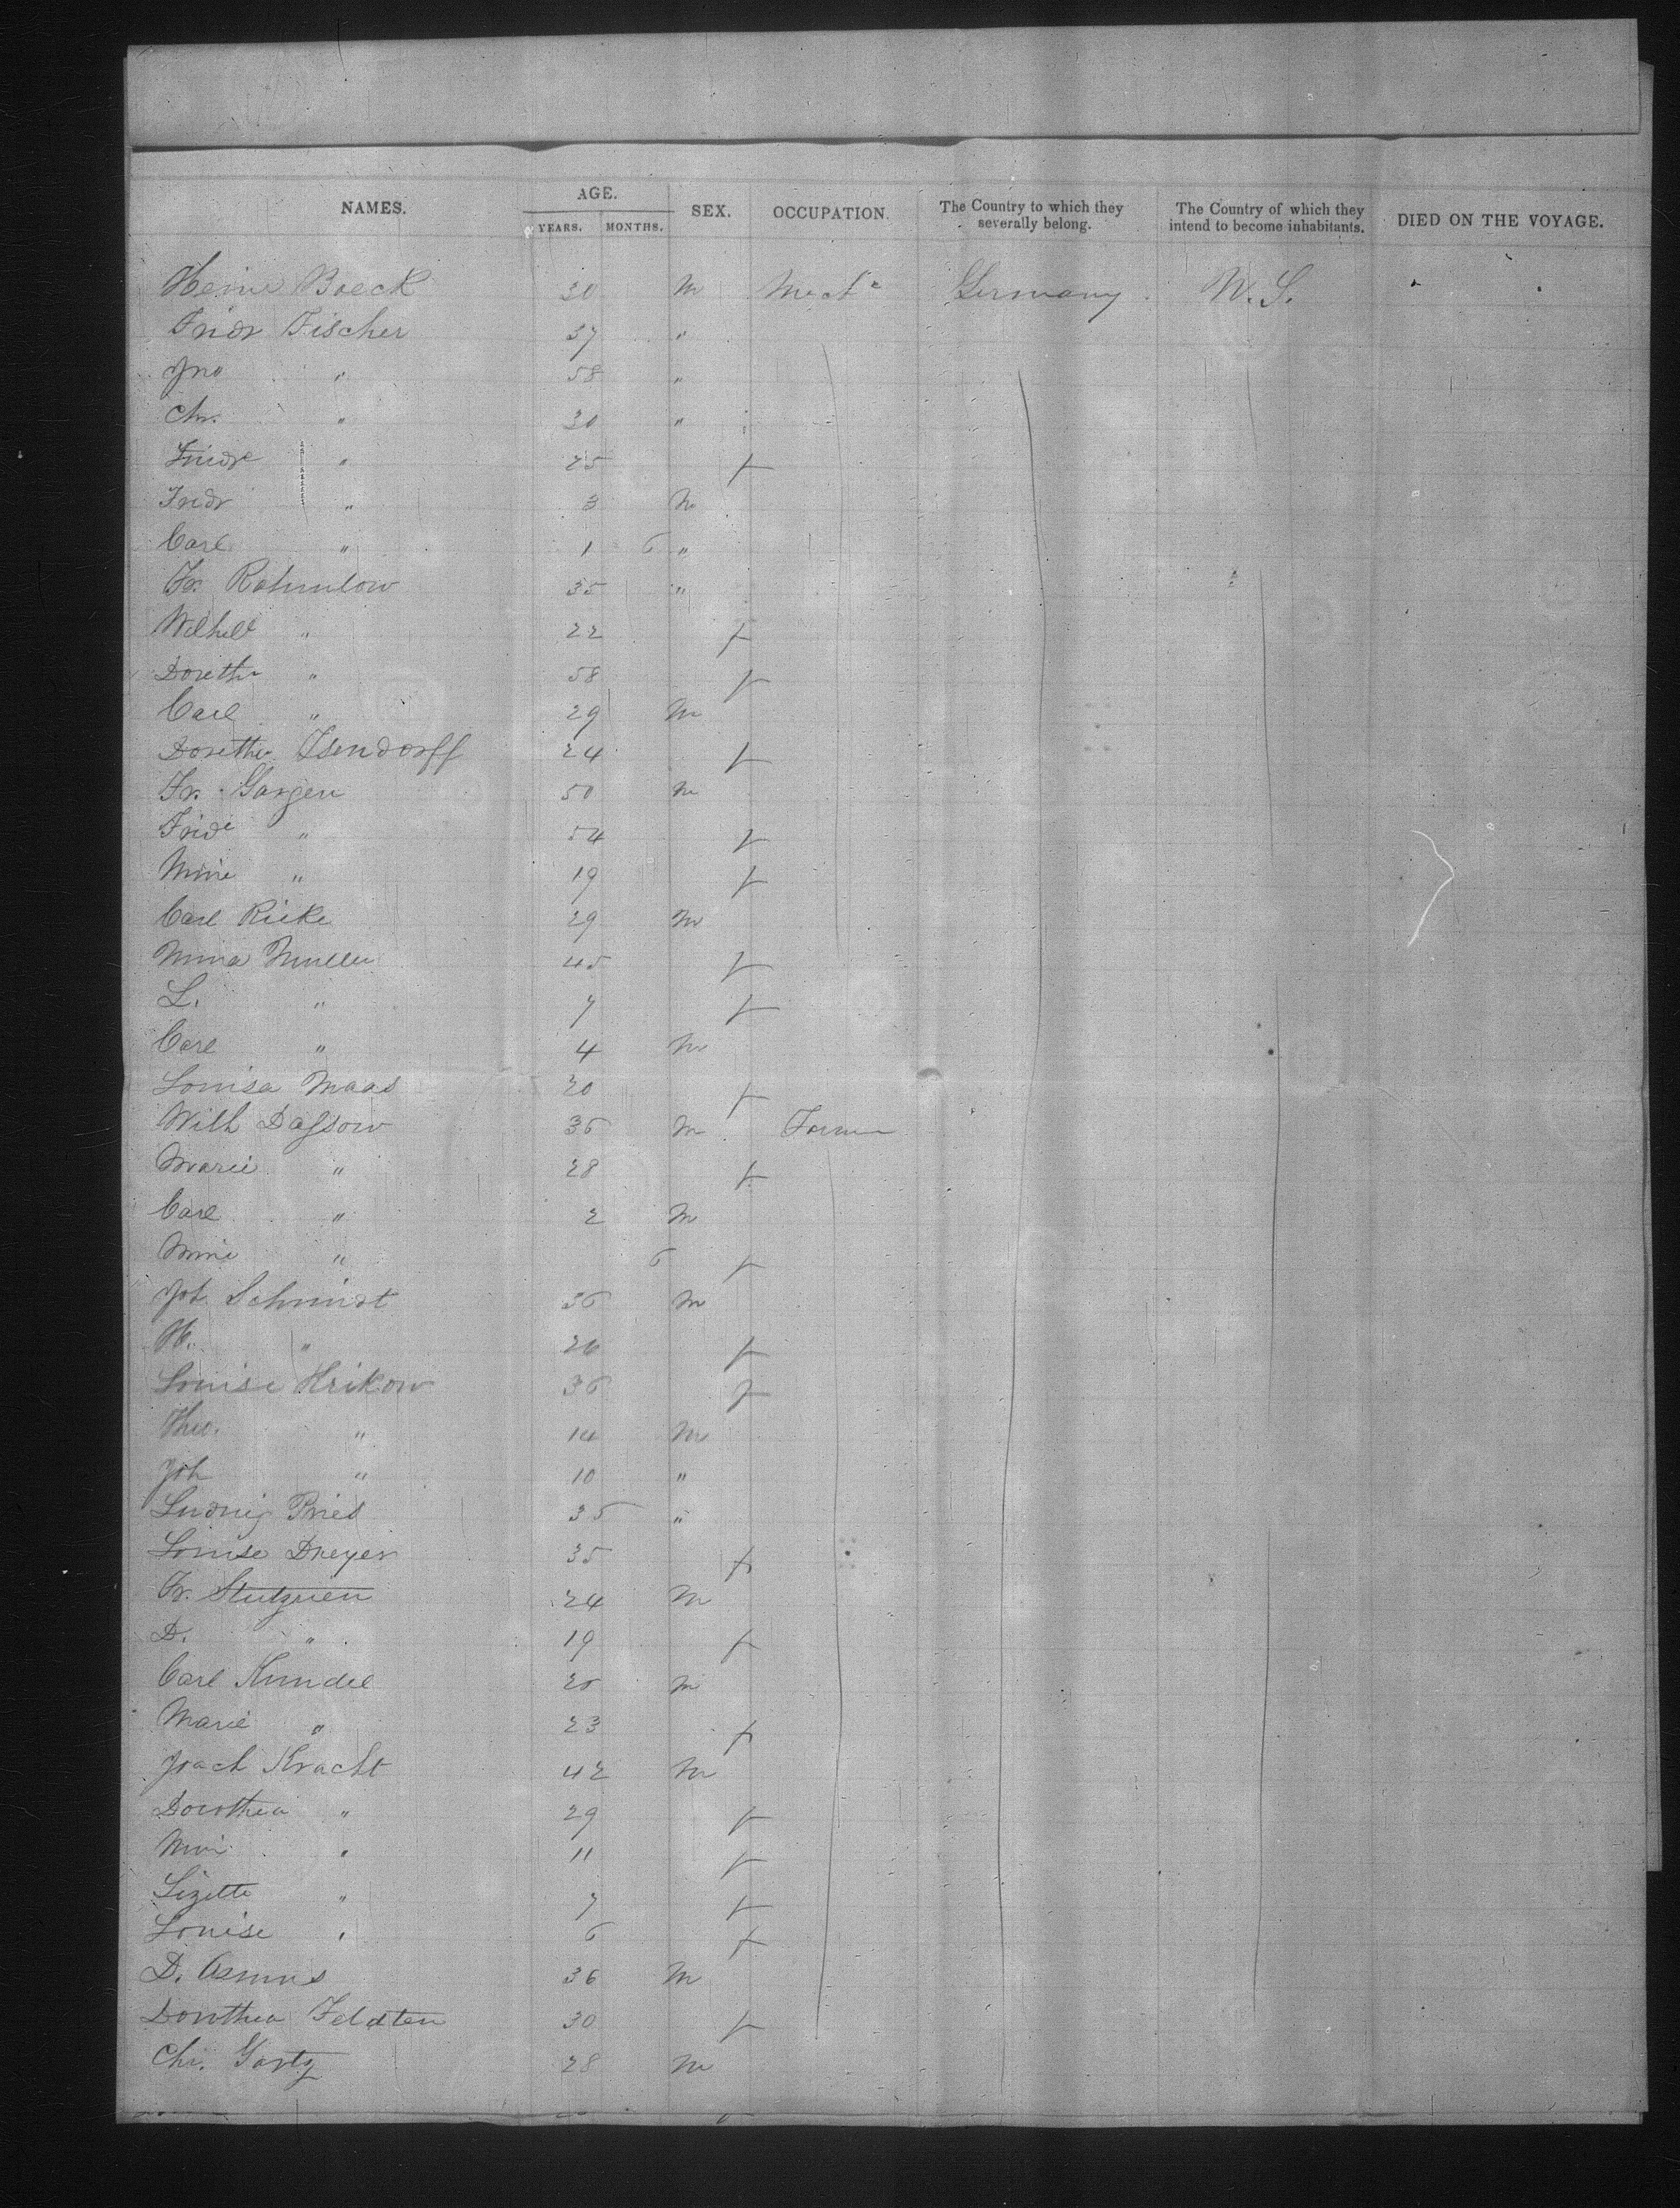 NAMES. AGE. SEX. OCCUPATION. The Country to which they severally belong. The Country of which they intend to become inhabitants. DIED ON THE VOYAGE.
YEARS. MONTHS.
Boeck 30 m Mech Germany U.S.
Fridr Fischer 37 "
Jno " 58 "
Chr. " 30 "
Fridr " 25 f
Fridr " 3 m
Carl " 1 6 "
Fr. 35 "
" 22 f
Doreth " 58 f
Carl " 29 m
Dorethe Isendorff 24 f
Fr. Gargen 50 m
Fride " 54 f
Mine " 19 f
Carl Rieke 29 m
Mina Muller 45 f
L. " 7 f
Carl " 4 m
Louisa Maas 20 f
Wilh Dassow 36 m Farmer
Marie " 28 f
Carl " 2 m
Mine " 6 f
Joh Schmidt 36 m
H. " 26 f
Louise 36 f
Theo. " 14 m
Joh " 10 "
Ludwig Pries 35 "
Louise Dreyer 35 f
Fr. 24 m
D. " 19 f
Carl Kundel 25 m
Marie " 23 f
Joach Kracht 42 m
Dorothea " 29 f
Mini " 11 f
Lizette " 7 f
Louise " 6 f
D. Asmus 36 m
Dorothea Feldten 30 f
Chr. Gartz 28 m